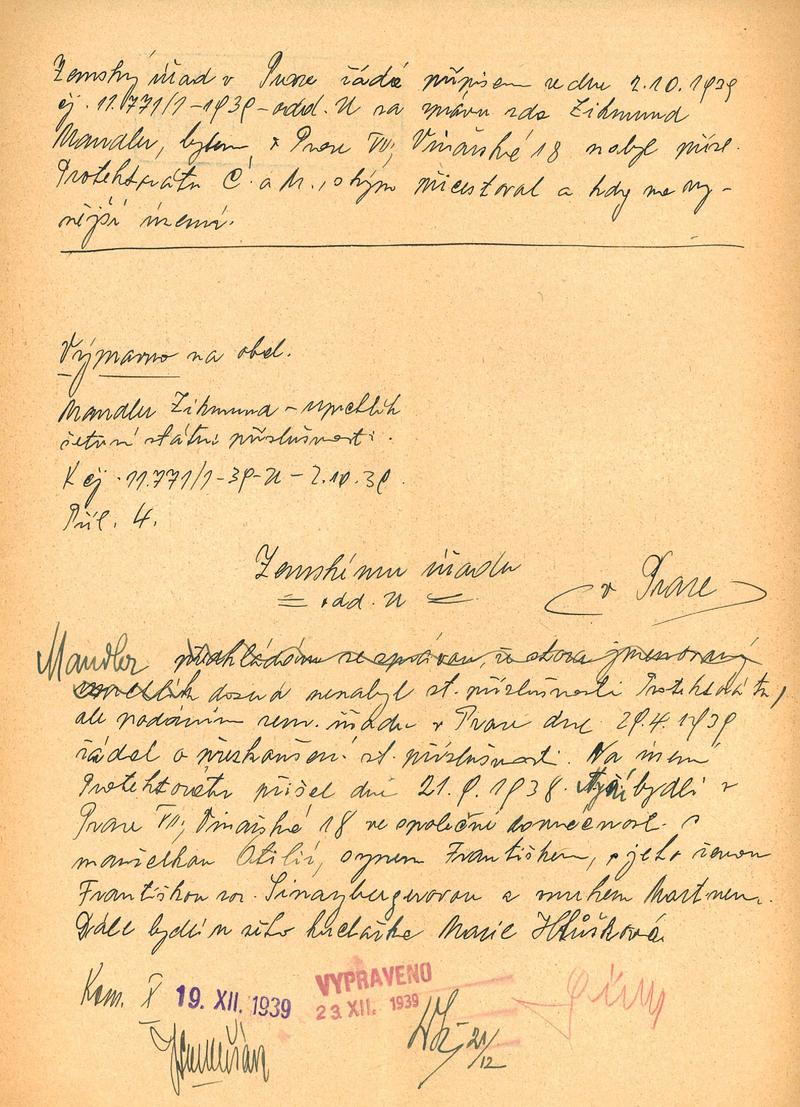 Zemský úřad v Praze žádá přípisem ze dne 2.10.1939
čj. 11.771/1-1939-odd. U za zprávu zda Zikmund
Mandler, bytem v Praze VII, Vinařská 18 nabyl přísl.
Protektorátu Č. a M., odkým přicestoval a kdy na ny-
nější území.
Výmazno na obál.
Mandler Zikmund - uprchlík
šetření státní příslušnosti.
K čj. 11.771/1-39-U - 2.10.39.
Příl. 4.
Zemskému úřadu
odd. U
v Praze
Mandler předkládám se zprávou, že shora jmenovaný
uprchlík dosud nenabyl st. příslušnosti Protektorátu,
ale podáním zem. úřadu v Praze dne 29.4.1939
žádal o přezkoušení st. příslušnosti. Na území
Protektorátu přišel dne 21.9.1938. Nyní bydlí v
Praze VII, Vinařská 18 ve společné domácnosti s
manželkou Otilií, synem Františkem, jeho ženou
Františkou roz. a vnukem Martinem.
Dále bydlí u něho kuchařka Marie
Kom. X
19. XII. 1939
VYPRAVENO
23. XII. 1939
21/12